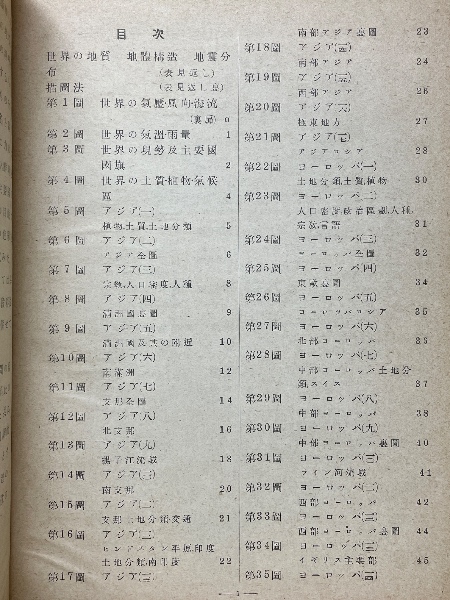 目次
世界の地質 地體構造 地震分
布 (表見返し)
描圖法 (表見返し裏)
第1圖 世界の氣壓・風向・海流
(裏扉) 0
第2圖 世界の氣溫・雨量 1
第3圖 世界の現勢及主要國
國旗 2
第4圖 世界の土質・植物・氣候
區 4
第5圖 アジア(一)
植物、土質、土地分類 5
第6圖 アジア(二)
アジア全圖 6
第7圖 アジア(三)
宗敎、人口密度、人種 8
第8圖 アジア(四)
滿洲國總圖 9
第9圖 アジア(五)
滿洲國及其の附近 10
第10圖 アジア(六)
南滿洲 12
第11圖 アジア(七)
支那全圖 14
第12圖 アジア(八)
北支那 16
第13圖 アジア(九)
揚子江流域 18
第14圖 アジア
南支那 20
第15圖 アジア
支那土地分類交通 21
第16圖 アジア
ヒンヅスタン平原印度
土地分類南印度 22
第17圖 アジア
南部アジア總圖 23
第18圖 アジア
南部アジア 24
第19圖 アジア
西部アジア 26
第20圖 アジア
極東地方 27
第21圖 アジア
アジアロシア 28
第22圖 ヨーロッパ(一)
土地分類、土質、植物 30
第23圖 ヨーロッパ(二)
人口密度、政治區劃、人種、
宗敎、言語 31
第24圖 ヨーロッパ(三)
ヨーロッパ全圖 32
第25圖 ヨーロッパ(四)
東歐總圖 34
第26圖 ヨーロッパ(五)
ヨーロッパロシア 35
第27圖 ヨーロッパ(六)
北部ヨーロッパ 36
第28圖 ヨーロッパ(七)
中部ヨーロッパ土地分
類スイス 37
第29圖 ヨーロッパ(八)
中部ヨーロッパ 38
第30圖 ヨーロッパ(九)
中部ヨーロッパ裏圖 40
第31圖 ヨーロッパ
ライン河流域 41
第32圖 ヨーロッパ
西部ヨーロッパ 42
第33圖 ヨーロッパ
西部ヨーロッパ總圖 44
第34圖 ヨーロッパ
イギリス主要部 45
第35圖 ヨーロッパ